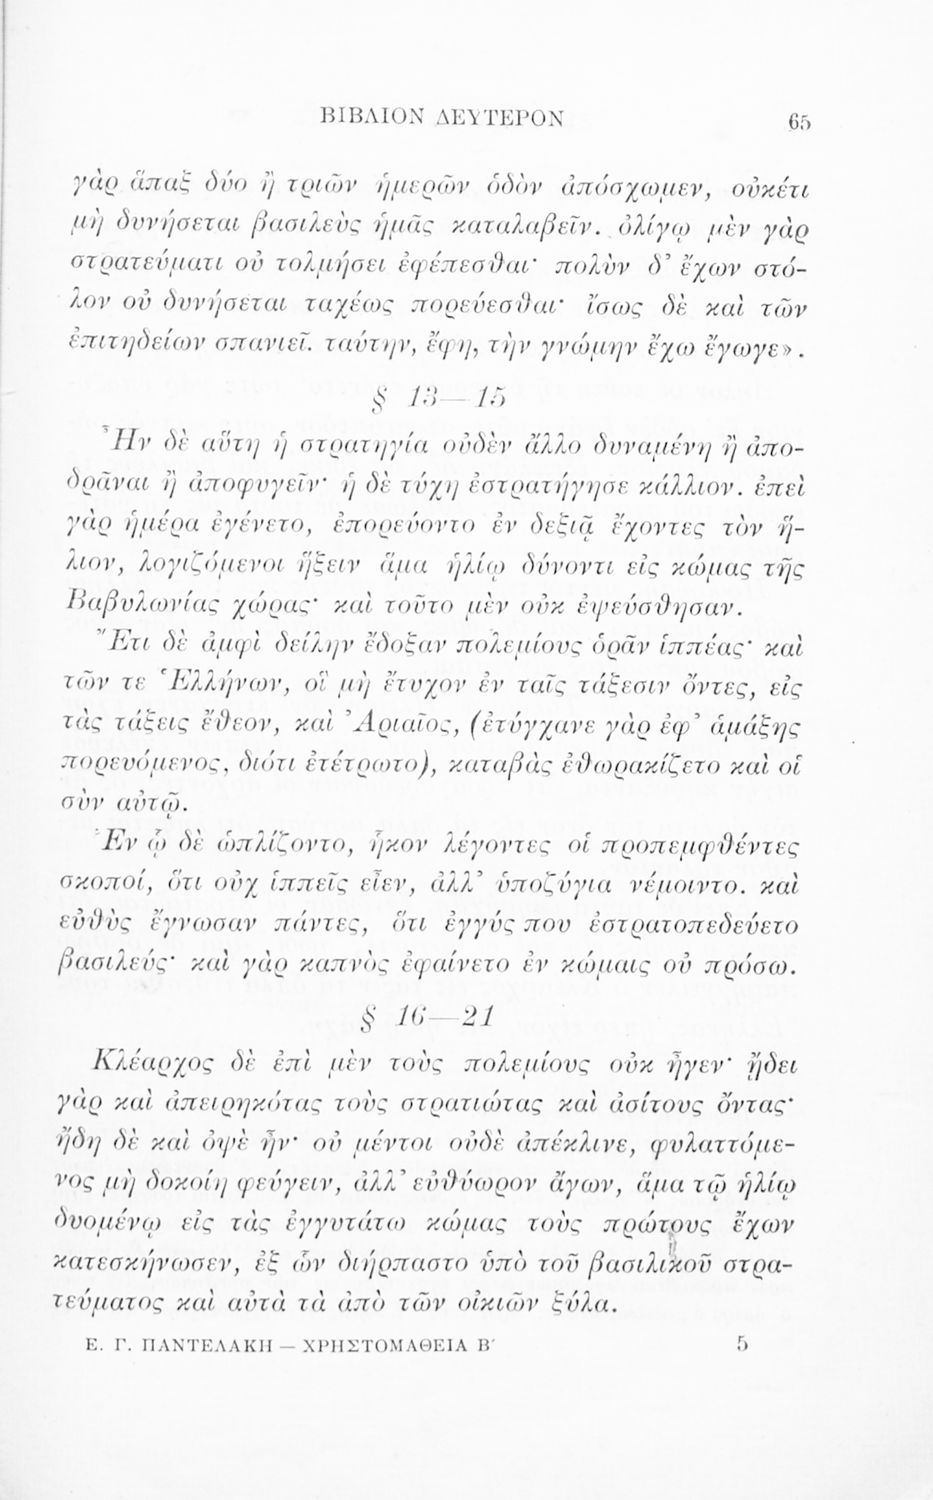 ΒΙΒΛΙΟΝ ΔΕΥΤΕΡΟΝ 65
γὰρ ἅπαξ δύο ἢ τριῶν ἡμερῶν ὁδὸν ἀπόσχωμεν, οὐκέτι
μὴ δυνήσεται βασιλεὺς ἡμᾶς καταλαβεῖν. ὀλίγῳ μὲν γὰρ
στρατεύματι οὐ τολμήσει ἐφέπεσθαι· πολὺν δ’ ἔχων στό-
λον οὐ δυνήσεται ταχέως πορεύεσθαι· ἴσως δὲ καὶ τῶν
ἐπιτηδείων σπανιεῖ. ταύτην, ἔφη, τὴν γνώμην ἔχω ἔγωγε».
§ 13—15
Ἦν δὲ αὕτη ἡ στρατηγία οὐδὲν ἄλλο δυναμένη ἢ ἀπο-
δρᾶναι ἢ ἀποφυγεῖν· ἡ δὲ τύχη ἐστρατήγησε κάλλιον. ἐπεὶ
γὰρ ἡμέρα ἐγένετο, ἐπορεύοντο ἐν δεξιᾷ ἔχοντες τὸν ἥ-
λιον, λογιζόμενοι ἥξειν ἅμα ἡλίῳ δύνοντι εἰς κώμας τῆς
Βαβυλωνίας χώρας· καὶ τοῦτο μὲν οὐκ ἐψεύσθησαν.
Ἔτι δὲ ἀμφὶ δείλην ἔδοξαν πολεμίους ὁρᾶν ἱππέας· καὶ
τῶν τε Ἑλλήνων, οἳ μὴ ἔτυχον ἐν ταῖς τάξεσιν ὄντες, εἰς
τὰς τάξεις ἔθεον, καὶ Ἀριαῖος, (ἐτύγχανε γὰρ ἐφ’ ἁμάξης
πορευόμενος, διότι ἐτέτρωτο), καταβὰς ἐθωρακίζετο καὶ οἱ
σὺν αὐτῷ.
Ἐν ᾧ δὲ ὡπλίζοντο, ἧκον λέγοντες οἱ προπεμφθέντες
σκοποί, ὅτι οὐχ ἱππεῖς εἶεν, ἀλλ’ ὑποζύγια νέμοιντο. καὶ
εὐθὺς ἔγνωσαν πάντες, ὅτι ἐγγύς που ἐστρατοπεδεύετο
βασιλεύς· καὶ γὰρ καπνὸς ἐφαίνετο ἐν κώμαις οὐ πρόσω.
§ 16—21
Κλέαρχος δὲ ἐπὶ μὲν τοὺς πολεμίους οὐκ ἦγεν· ᾔδει
γὰρ καὶ ἀπειρηκότας τοὺς στρατιώτας καὶ ἀσίτους ὄντας·
ἤδη δὲ καὶ ὀψὲ ἦν· οὐ μέντοι οὐδὲ ἀπέκλινε, φυλαττόμε-
νος μὴ δοκοίη φεύγειν, ἀλλ’ εὐθύωρον ἄγων, ἅμα τῷ ἡλίῳ
δυομένῳ εἰς τὰς ἐγγυτάτω κώμας τοὺς πρώτους ἔχων
κατεσκήνωσεν, ἐξ ὧν διήρπαστο ὑπὸ τοῦ βασιλικοῦ στρα-
τεύματος καὶ αὐτὰ τὰ ἀπὸ τῶν οἰκιῶν ξύλα.
Ε. Γ. ΠΑΝΤΕΛΑΚΗ — ΧΡΗΣΤΟΜΑΘΕΙΑ Β΄ 5